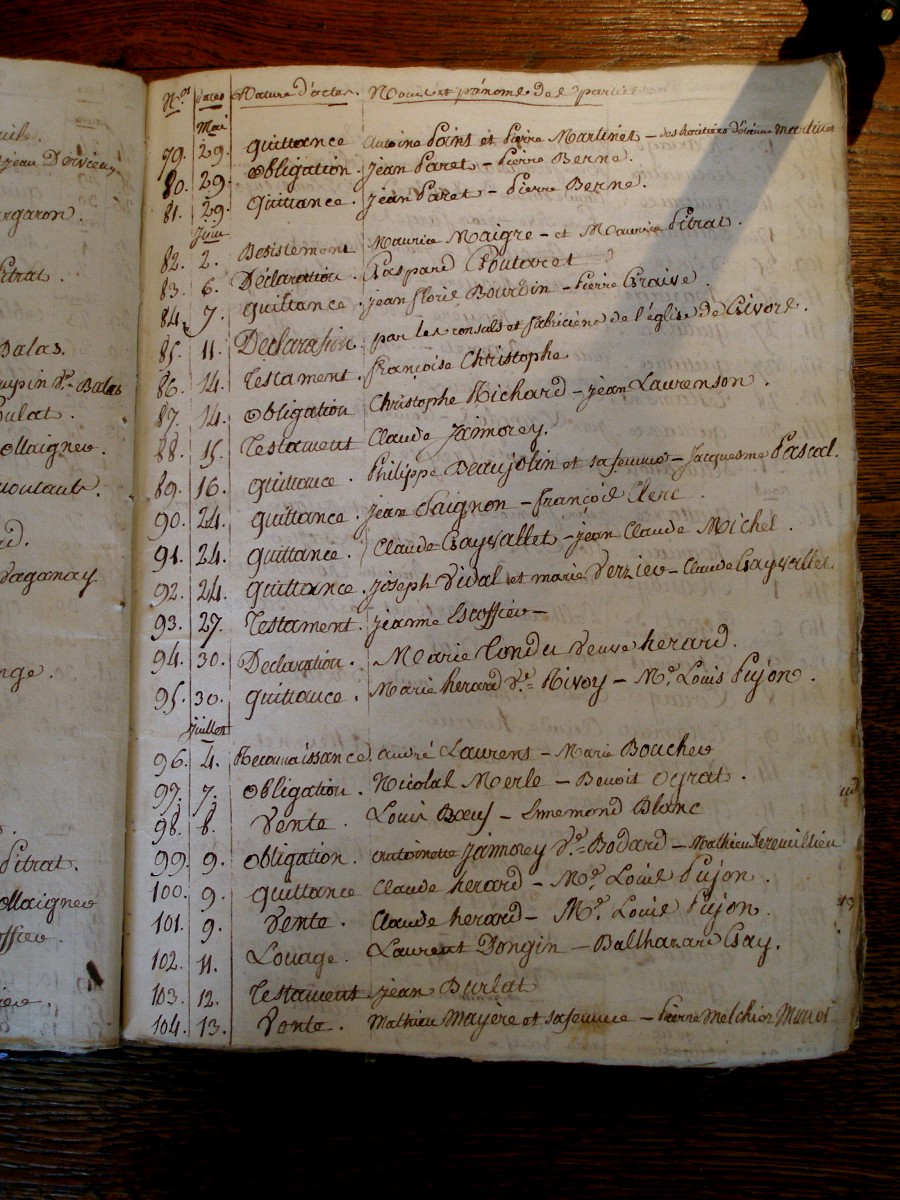 uile.
jean Dervieu
argaron.
Pitrat.
Balas.
upin Ve. Balas
oulat.
ollaignev.
outant.
rd.
Vaganay
nge.
Pitrat.
ollaignev
offiev.
iev.
Nos Dates Nature d'actes. Noms et prénoms des parties
Mai
79. 29. quittance Antoine Points et Pierre Martinet - des héritiers d'étienne Martinet
80. 29. obligation. jean Paret - Pierre Berne.
81. 29. quittance. jean Paret - Pierre Berne.
Juin
82. 2. Desistement Maurice Maigre - et Maurice Pitrat.
83. 6. Déclaration. Gaspard Coutaret
84. 7. quittance. jean florie Bourdin - Pierre Graive.
85. 11. Declaration. par les consuls et fabriciens de l'église de Givors.
86. 14. Testament. françoise Christophe
87. 14. obligation Christophe Richard - jean Laurenson.
88. 15. Testament Claude Jamorey.
89. 16. quittance. Philippe Beaujolin et sa femme - Jacquesme Pascal.
90. 24. quittance. jean Saignon - françois Clerc.
91. 24. quittance. Claude Gayvallet - jean Claude Michel.
92. 24. quittance. joseph Vidal et marie Verziev - Claude Gayvallet
93. 27. Testament. jeanne Escoffiev -
94. 30. Declaration. Marie Condu veuve herard.
95. 30. quittance. Marie herard Ve. Rivoy - Me. Louis Pujon.
Juillet
96. 4. Reconnaissance. andré Laurens - Marie Bouchev
97. 7. obligation. Nicolas Merle - Benoit ograt.
98. 8. vente. Louis Bœuf - Ennemond Blanc
99. 9. obligation. antoinette Jamorey Ve. Bodard - Mathieu
100. 9. quittance Claude herard - Me. Louis Pujon.
101. 9. vente. Claude herard - Me. Louis Pujon.
102. 11. Louage. Laurent Dongin - Balthazard Gay.
103. 12. Testament. jean Burlat
104. 13. vente. Mathieu Mayere et sa femme - Pierre Melchior